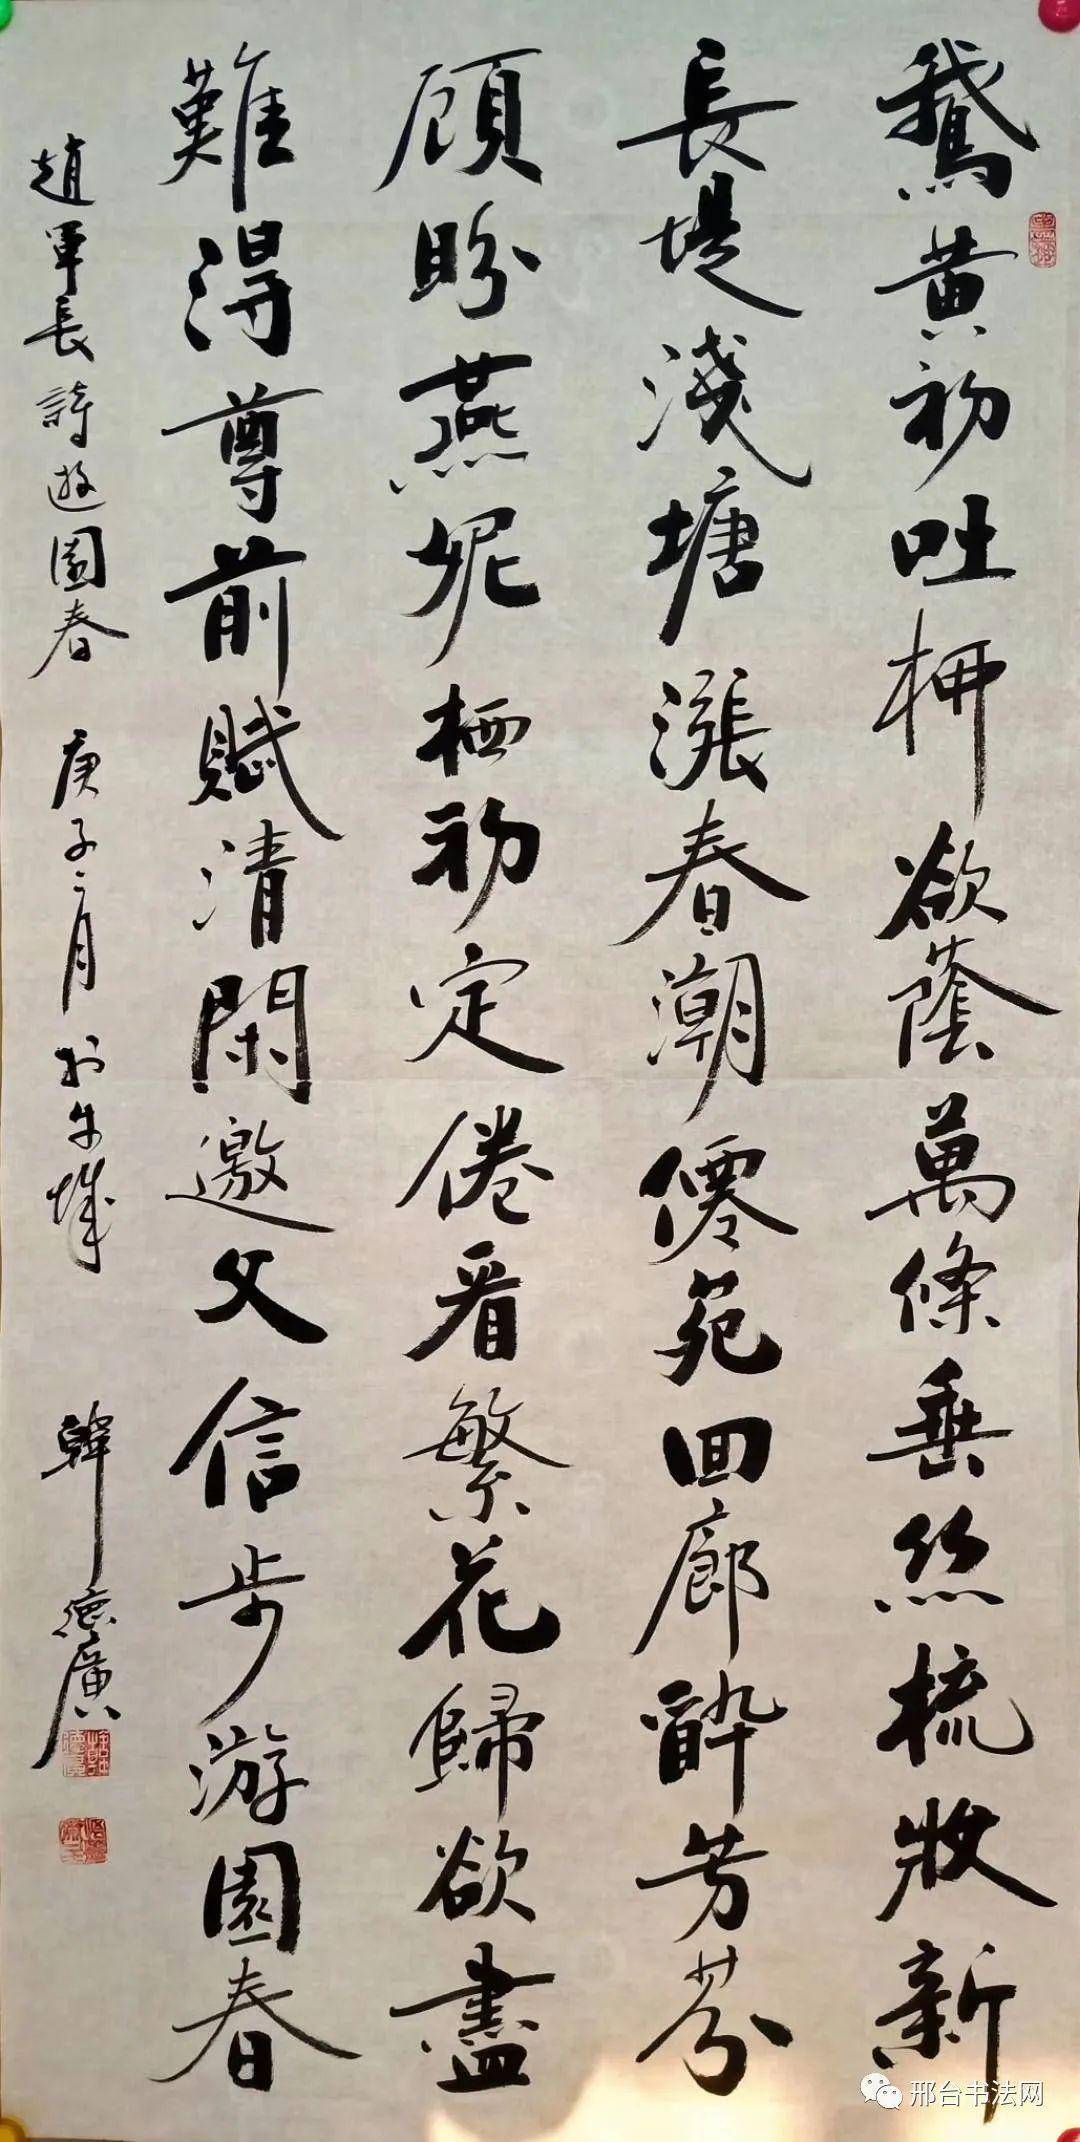 鵞黄初吐柳欲蔭萬條垂絲梳妝新
長堤淺塘漲春潮僊苑回廊醉芳芬
顧盼燕妮栖初定倦看繁花歸欲盡
難得尊前賦清閑邀父信步游園春
趙軍長詩遊園春 庚子二月於牛城 韓德廣
邢台书法网